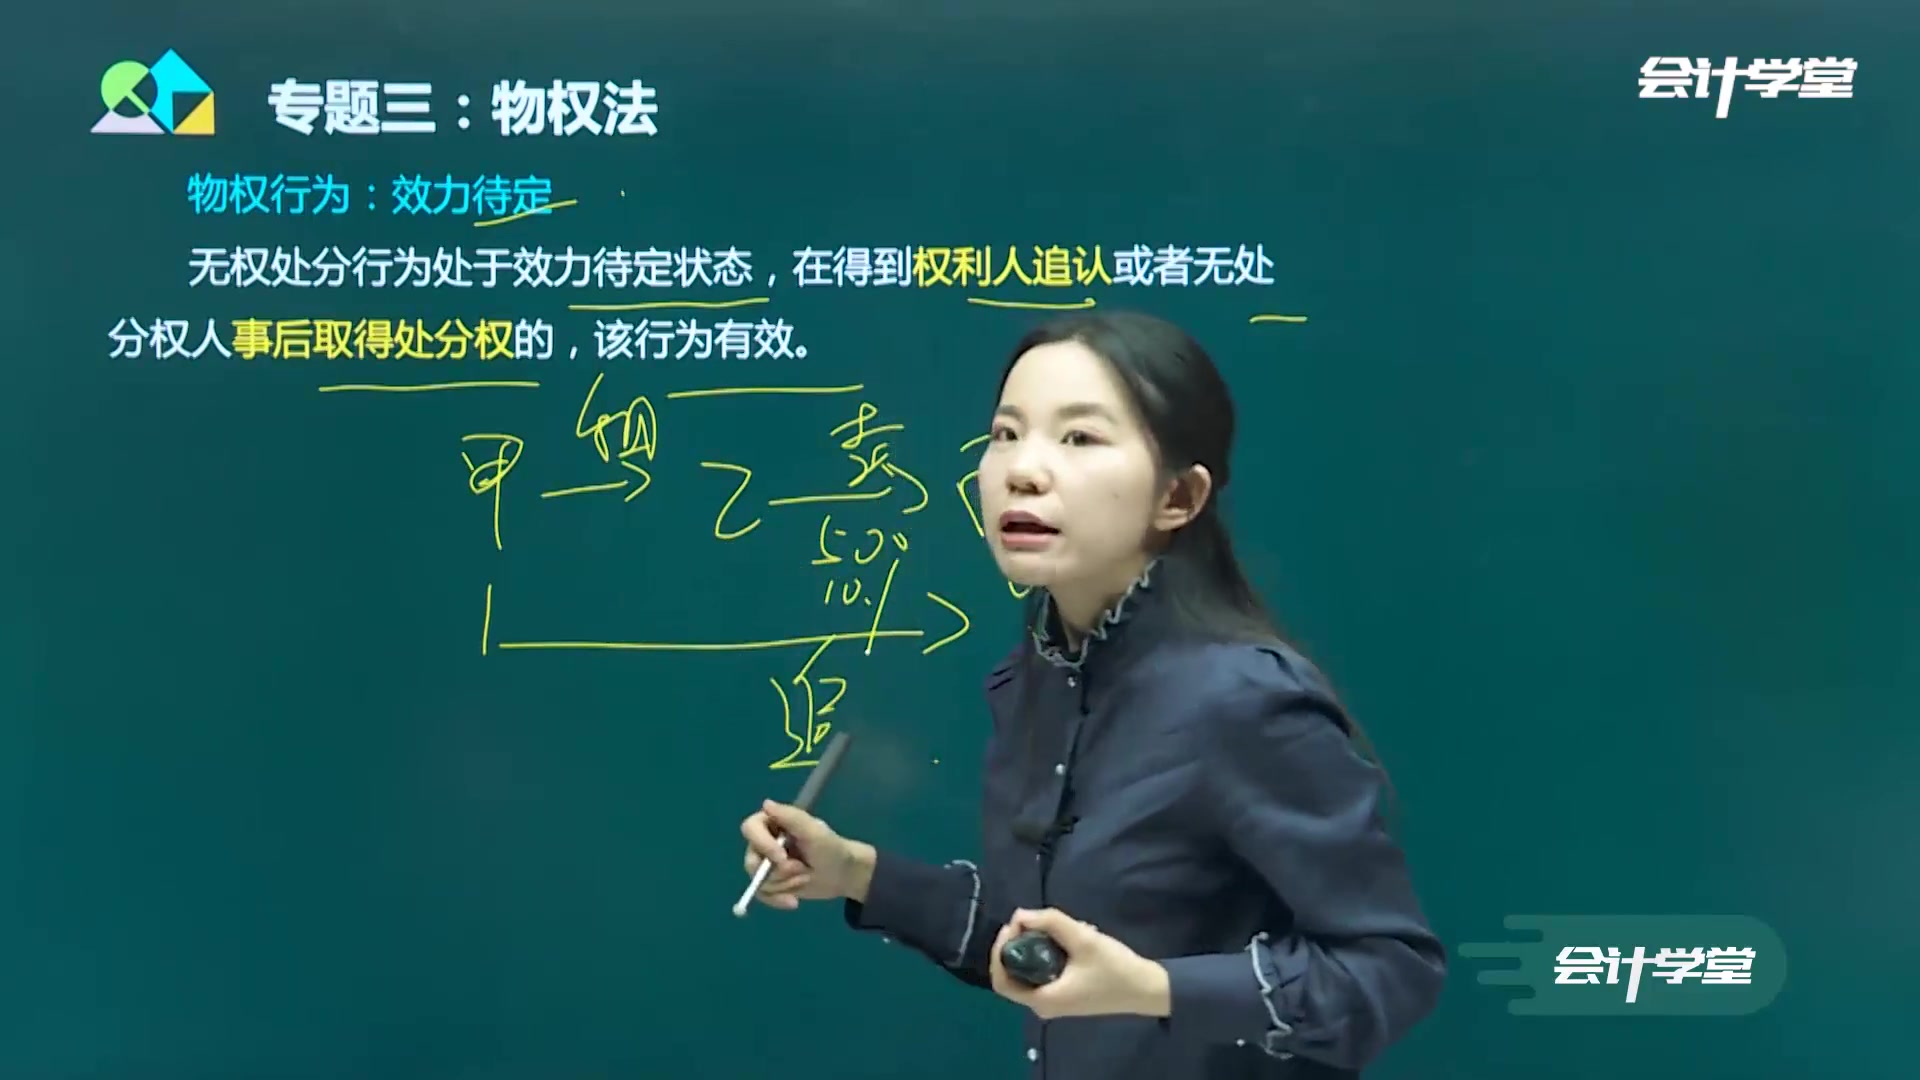 专题三：物权法
会计学堂
物权行为：效力待定
无权处分行为处于效力待定状态，在得到权利人追认或者无处
分权人事后取得处分权的，该行为有效。
甲 租 乙 卖
500
10
追
会计学堂